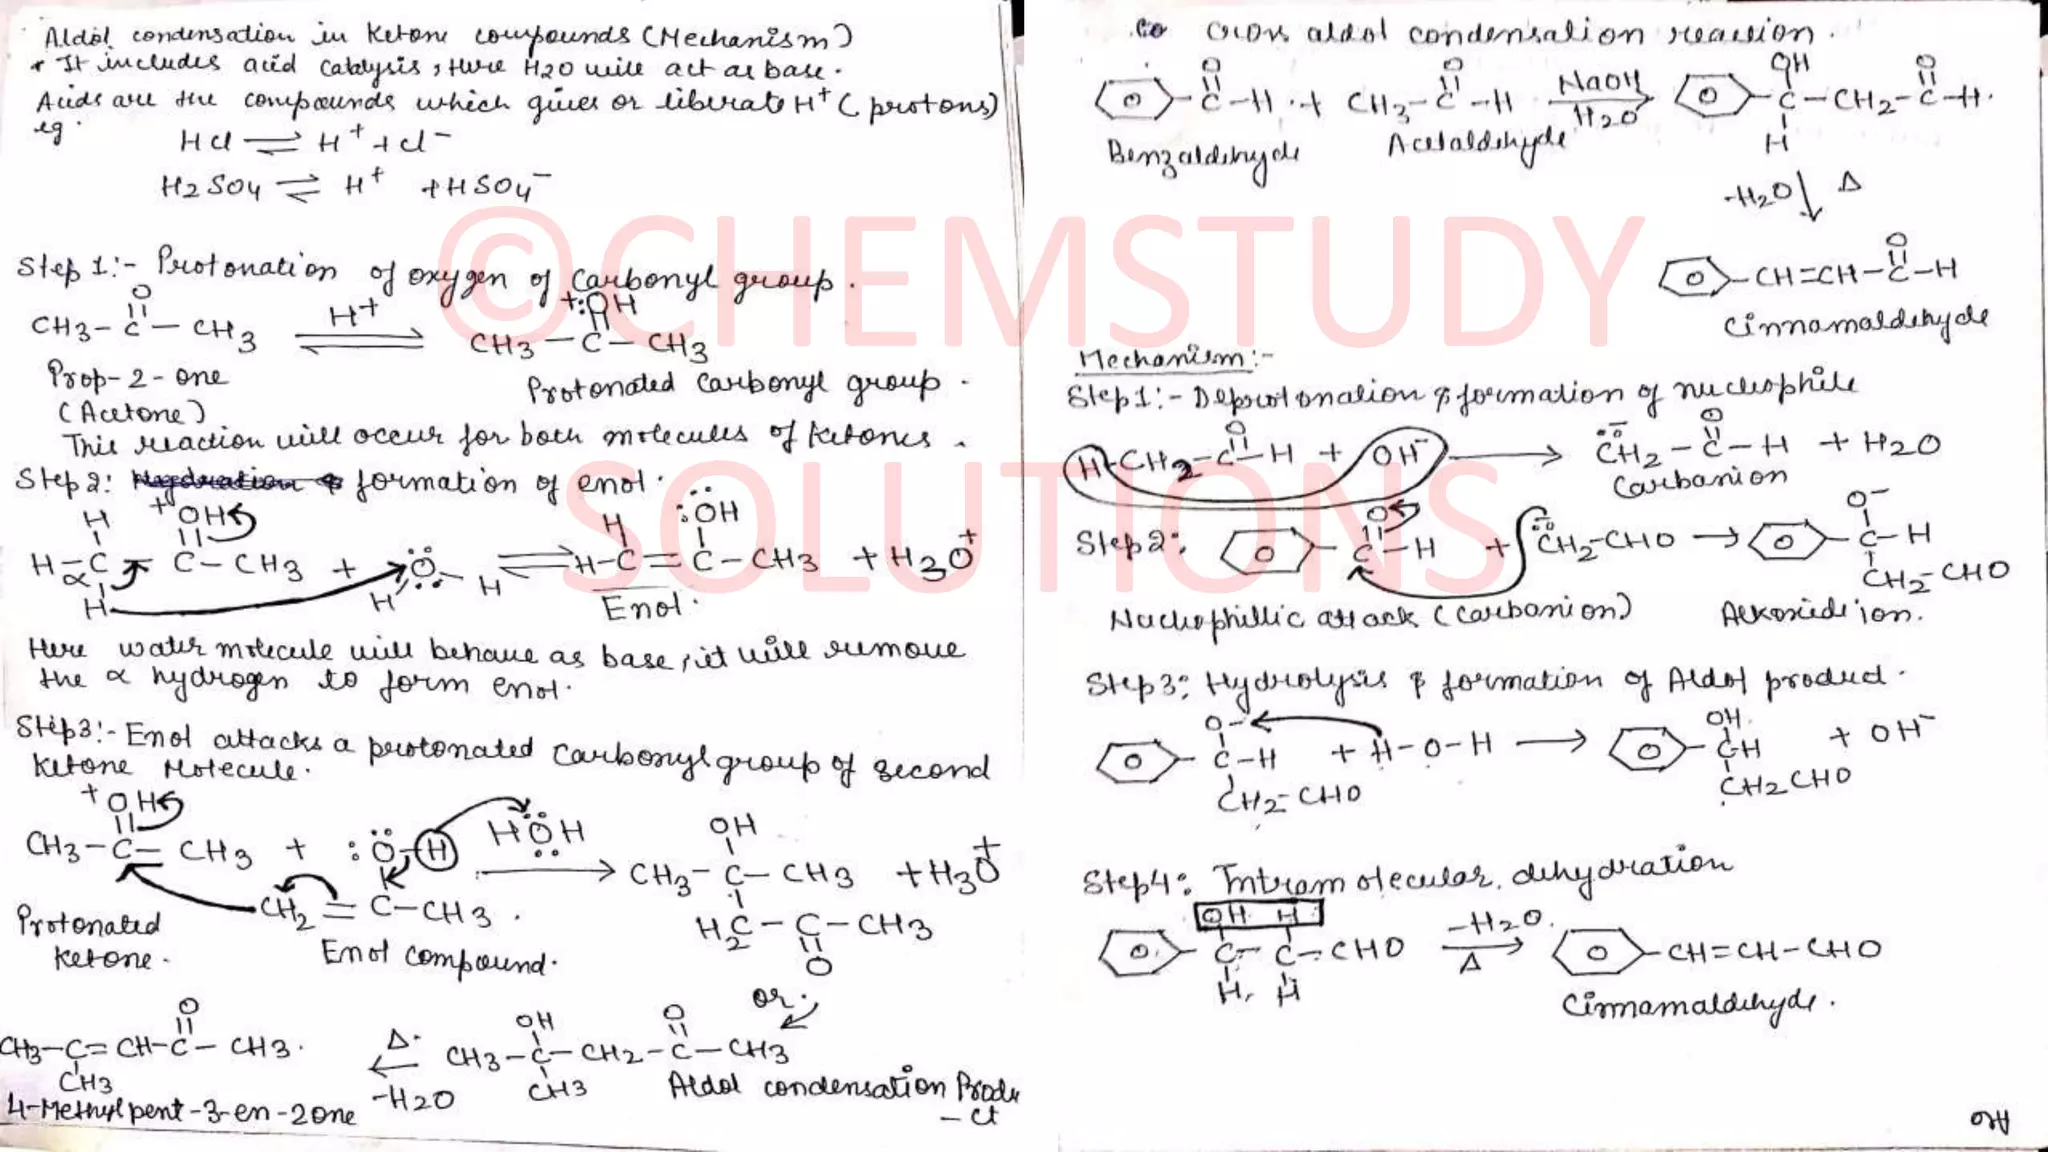 Aldol condensation in Ketone compounds (Mechanism)
* It includes acid catalysis, Here H2O will act as base.
Acids are the compounds which gives or liberate H+ (protons)
eg.
HCl ⇌ H+ + Cl-
H2SO4 ⇌ H+ + HSO4-
Step 1:- Protonation of oxygen of carbonyl group.
O
CH3-C-CH3 H+ ⇌ +:OH
CH3-C-CH3
Prop-2-one
(Acetone)
Protonated carbonyl group.
This reaction will occur for both molecules of ketones.
Step 2: formation of enol.
H +OH
H-C-C-CH3 + O-H ⇌ H-C=C-CH3 + H3O+
α
H H
H :OH
Enol.
Here water molecule will behave as base, it will remove
the α hydrogen to form enol.
Step3:- Enol attacks a protonated carbonyl group of second
ketone Molecule.
+OH
CH3-C=CH3 + :O-H HOH → CH3-C-CH3 + H3O+
OH
CH2=C-CH3.
H2C-C-CH3
O
Protonated
ketone.
Enol compound.
or.
O
CH3-C=CH-C-CH3.
CH3
Δ.
-H2O
OH O
CH3-C-CH2-C-CH3
CH3
4-Methylpent-3-en-2one
Aldol condensation Produ
-ct
Cross aldol condensation reaction.
O O NaOH OH O
-C-H + CH3-C-H → -C-CH2-C-H.
H2O H
Benzaldehyde Acetaldehyde
-H2O ↓ Δ
O
-CH=CH-C-H
Cinnamaldehyde
Mechanism:-
Step1:- Deprotonation & formation of nucleophile
O O
H-CH2-C-H + OH- → CH2-C-H + H2O
Carbanion
Step2:
O O-
-C-H + CH2-CHO → -C-H
CH2-CHO
Nucleophillic attack (carbanion) Alkoxide ion.
Step3: Hydrolysis & formation of Aldol product.
O- OH
-C-H + H-O-H → -CH + OH-
CH2-CHO CH2CHO
Step4: Intramolecular dehydration
OH H
-C-C-CHO -H2O. → -CH=CH-CHO
H, H Δ
Cinnamaldehyde.
©CHEMSTUDY
SOLUTIONS